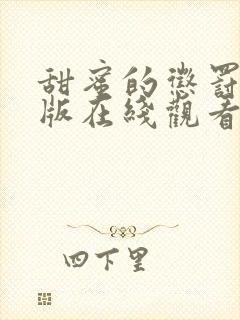 甜蜜的懲罰
版在綫觀看
四下里